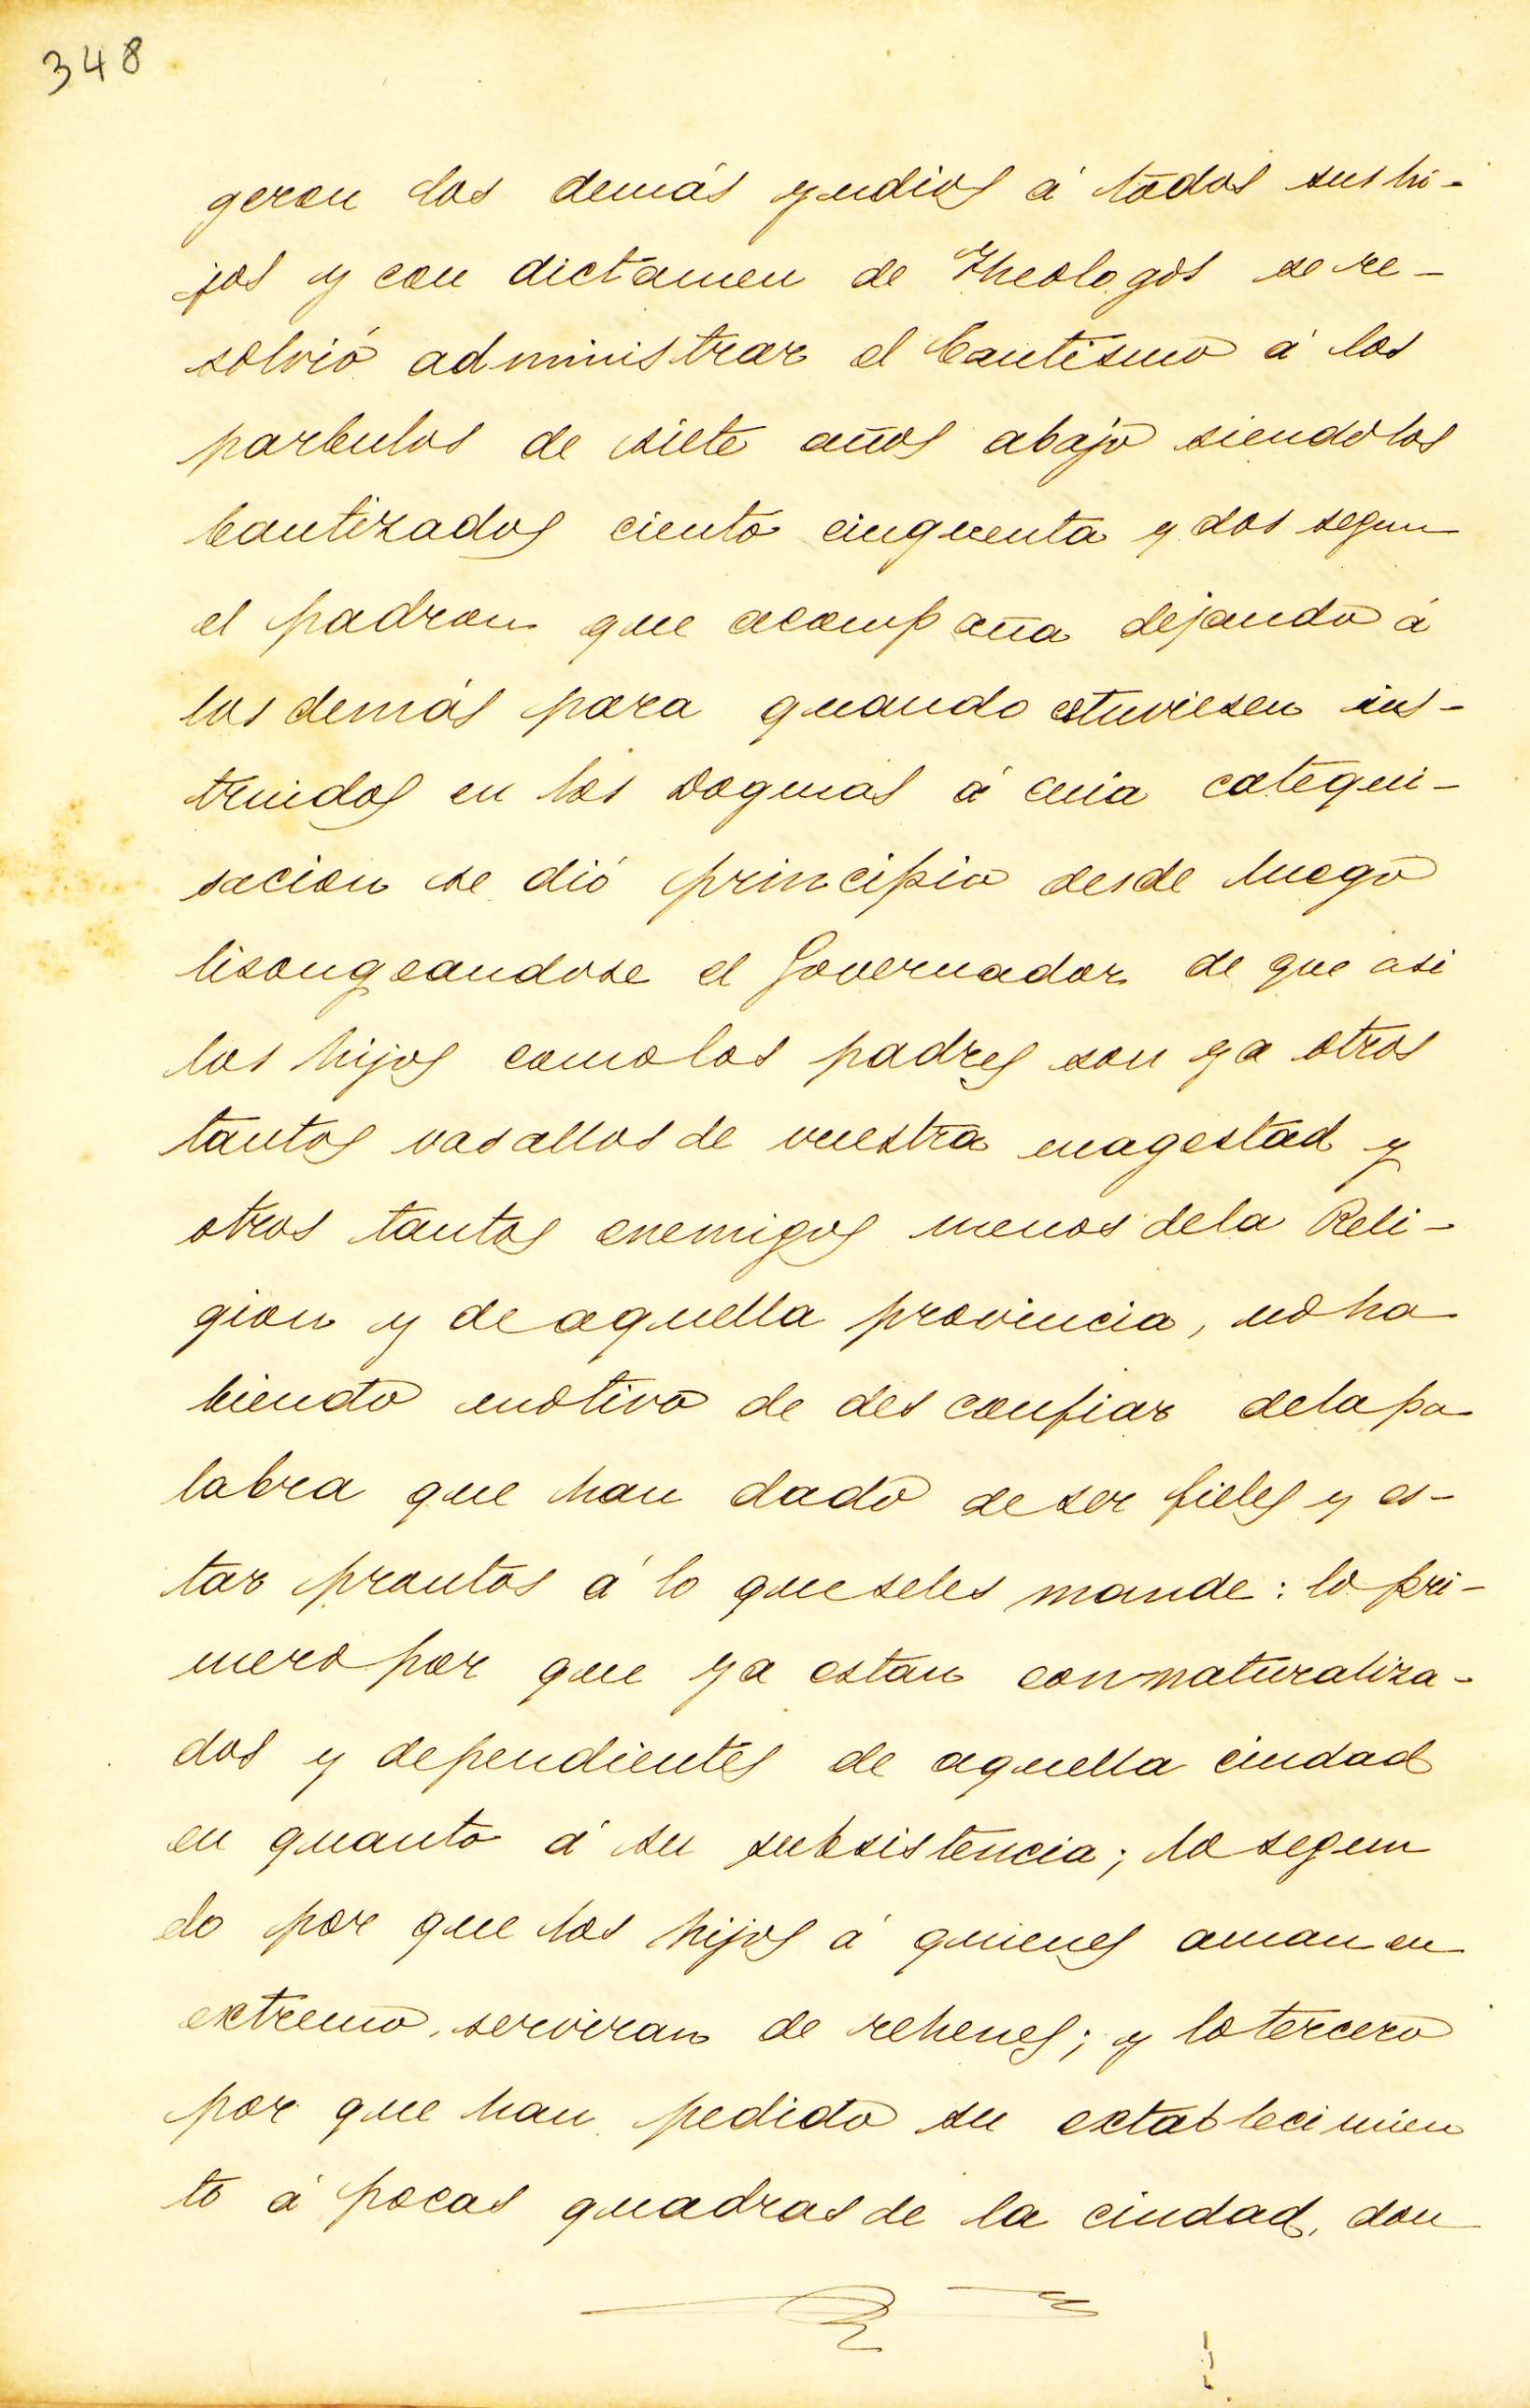 348
geron los demás yndios á todos sus hi-
jos y con dictamen de Theologos se re-
solvió administrar el bautismo á los
parbulos de siete años abajo siendo los
bautizados ciento cinquenta y dos segun
el padron que acompaña dejando á
los demás para quando estuviesen ins-
truidos en los Dogmas á cuia catequi-
sacion se dió principio desde luego
lisongeandose el Governador de que asi
los hijos como los padres son ya otros
tantos vasallos de vuestra magestad y
otros tantos enemigos menos dela Reli-
gion y de aquella provincia, no ha
biendo motivo de desconfiar dela pa
labra que han dado de ser fieles y es-
tar prontos á lo que seles mande: lo pri-
mero por que ya estan connaturaliza-
dos y dependientes de aquella ciudad
en quanto á su subsistencia; lo segun
do por que los hijos á quienes aman en
extremo, serviran de rehenes; y lo tercero
por que han pedido su extablecimien
to á pocas quadras de la ciudad, don